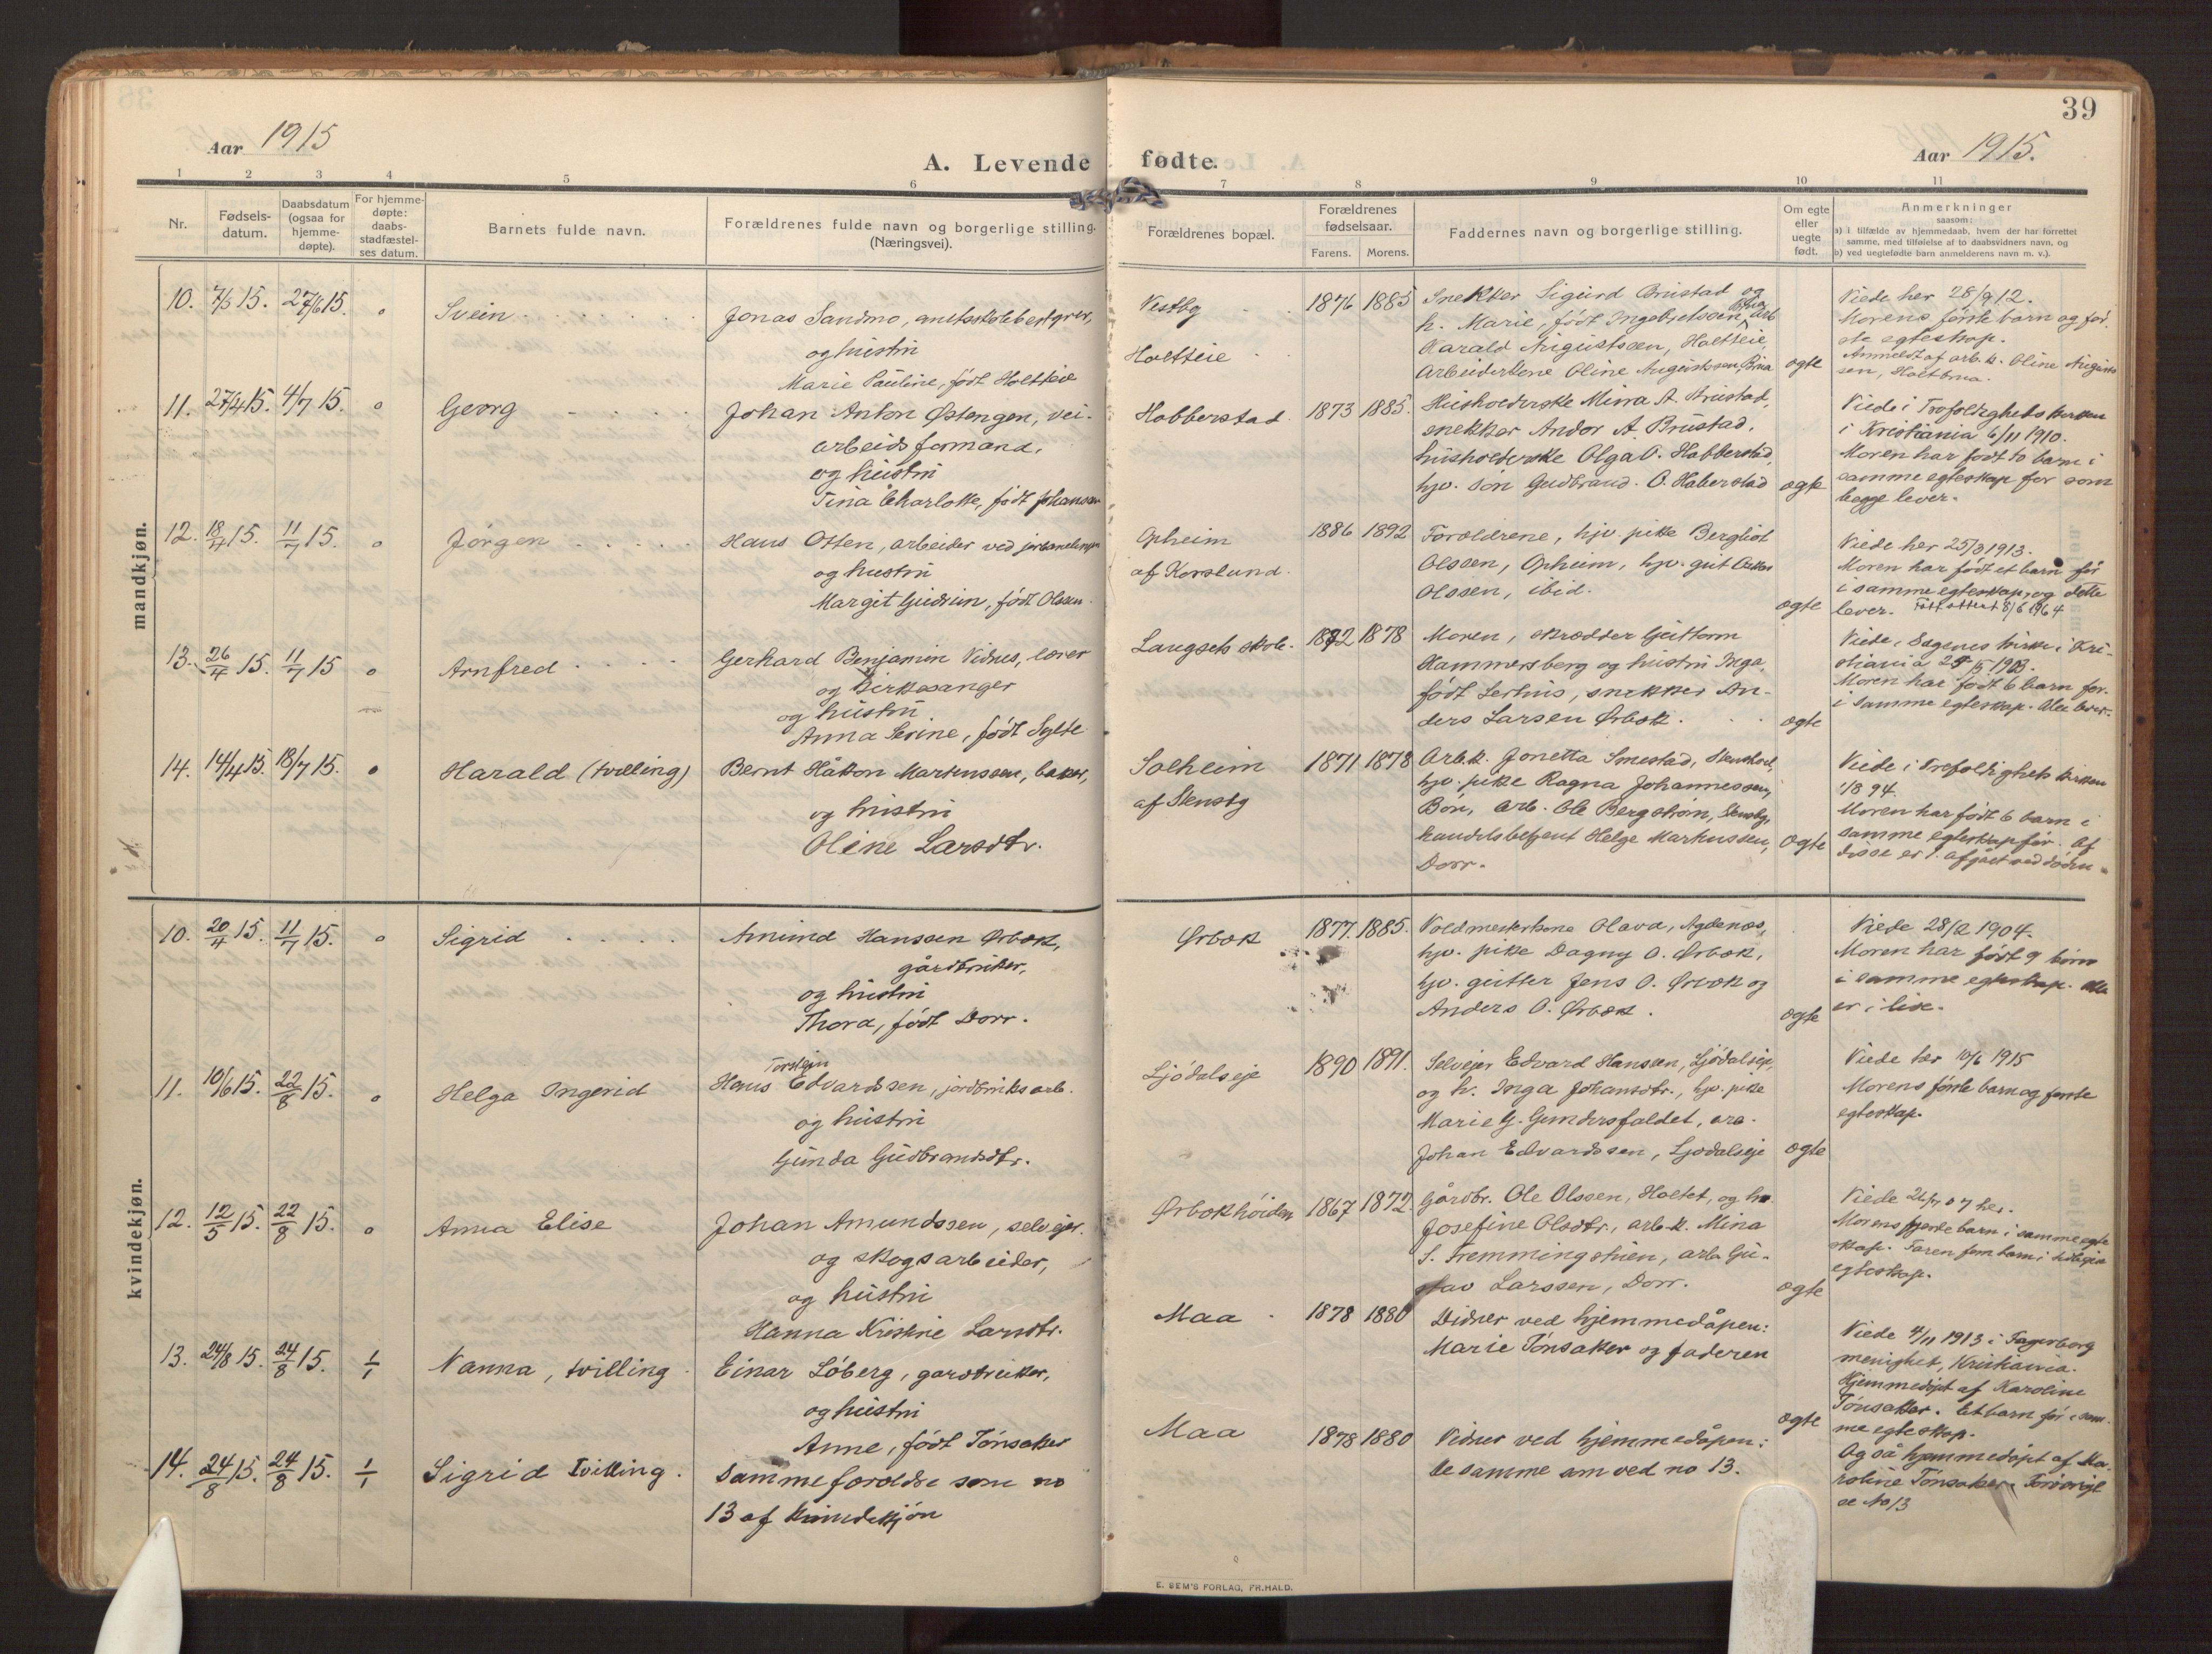 39
Aar 1915
A. Levende fødte.
Aar 1915.
1 2 3 4 5 6 7 8 9 10 11
Nr.
Fødsels-
datum.
Daabsdatum
(ogsaa for
hjemme-
døpte).
For hjemme-
døpte:
daabs-
stadfæstel-
ses datum.
Barnets fulde navn.
Forældrenes fulde navn og borgerlige stilling.
(Næringsvei).
Forældrenes bopæl.
Forældrenes
fødselsaar.
Farens. Morens.
Faddernes navn og borgerlige stilling.
Om egte
eller
uegte
født.
Anmerkninger
saasom:
a) i tilfælde av hjemmedaab, hvem der har forrettet
samme, med tilføielse af to daabsvidners navn, og
b) ved uegtefødte barn anmelderens navn m. v.).
mandkjøn.
10. 7/5 15. 27/6 15. 0
Svein
Jonas Sandmo, amtsskolebestyrer,
og hustru
Marie Pauline, født Holtteie
Vestby
Holtteie
1876 1885
Snekker Sigurd Brustad og
h. Marie, født
Harald Augustssen, Holtteie,
Arbeiderkone Oline Augustssen, Brua
ægte
Viede her 28/9 12.
Morens første barn og før-
ste egteskap.
Anmeldt af arb.k. Oline Augusts
sen, Holtbrua.
11. 27/4 15. 4/7 15. 0
Georg
Johan Anton Østengen, vei-
arbeidsformand,
og hustru
Tina Charlotte, født Johansen
Habberstad
1873 1885.
Husholderske Minna A. Brustad,
snekker Andor A. Brustad,
husholderske Olga O. Habberstad,
hjv. søn Gudbrand O. Haberstad
ægte
Viede i Trefoldighets kirken
i Kristiania 6/11 1910.
Moren har født to barn i
samme egteskap før som
begge lever.
12. 18/4 15. 11/7 15. 0
Jørgen
Hans Olsen, arbeider ved jernbanelinjen
og hustru
Margit Gudrun, født Olssen
Opheim
af Korslund.
1886 1892
Forældrene, hjv. pike Bergliot
Olssen, Opheim, hjv. gut Oskar
Olssen, ibid.
ægte
Viede her 25/3 1913.
Moren har født et barn før
i samme egteskap, og dette
lever. 8/6 1964
13. 26/4 15. 11/7 15 0
Arnfred
Gerhard Benjamin Vidnes, lærer
og kirkesanger
og hustru
Anna Serine, født Sylte
Langseth skole.
1872 1878
Moren, skrædder Guttorm
Hammersberg og hustru Inga,
født Lerhus, snekker An-
ders Larsen Ørbæk.
ægte
Viede i Sagenes kirke i Kri-
stiania
Moren har født 6 barn før
i samme egteskap. Alle lever.
14. 14/4 15. 18/7 15. 0
Harald (tvilling)
Bernt Håkon Markussen, baker,
og hustru
Oline Larsdtr.
Solheim
af Stensby
1871 1878
Arb.k. Jonetta Smestad,
hjv. pike Ragna Johannessen,
Bøn, arb. Ole Bergstrøm, Stensby,
handelsbetjent Helge Markussen,
Dorr.
ægte
Viede i Trefoldighets kirken
1894.
Moren har født 6 barn i
samme egteskap før. Af
disse er 1 afgået ved døden.
kvindekjøn.
10. 20/4 15. 11/7 15. 0
Sigrid
Amund Hanssen Ørbæk,
gårdbruker,
og hustru
Thora, født Dorr.
Ørbæk
1877. 1885.
Voldmesterkone Olava, Agdenæs,
hjv. pike Dagny O. Ørbæk,
hjv. gutter Jens O. Ørbæk og
Anders O. Ørbæk.
ægte
Viede 28/12 1904.
Moren har født 9 børn
i samme egteskap. Alle
er i live.
11. 10/6 15. 22/8 15. 0
Helga Ingerid
Torstein
Hans Edvardssen, jordbruksarb.
og hustru
Gunda Gudbrandsdtr.
Ljødalseje
1890 1891.
Selvejer Edvard Hanssen, Ljødalseje,
og h. Inga Johansdtr., hjv. pike
Marie G. Gundersfaldet, arb.
Johan Edvardssen, Ljødalseje
ægte
Viede her 10/6 1915
Morens første barn og første
egteskap.
12. 12/5 15. 22/8 15. 0
Anna Elise
Johan Amundssen, selvejer
og skogsarbeider,
og hustru
Hanna Kristine Larsdtr.
Ørbækhøiden
1867 1872.
Gårdbr. Ole Olssen, Holtet, og hu.
Josefine Olsdtr., arb.k. Mina
S. Fremmingstuen, arb. Gu-
stav Larssen, Dorr.
ægte
Viede 07 her.
Morens fjerde barn i samme egte
skap. Faren fem barn i tidligere
egteskap.
13. 24/8 15. 24/8 15. 1/1
Nanna, tvilling
Einar Løberg, gardbruker,
og hustru
Anne, født Tønsaker
Maa
1878 1880
Vidner ved hjemmedåpen:
Marie Tønsaker og faderen
ægte
Viede 4/11 1913 i Fagerborg
menighet, Kristiania.
Hjemmedøpt af Karoline
Tønsaker. Et barn før i sam-
me egteskap.
14. 24/8 15. 24/8 15. 1/1
Sigrid Tvilling.
Samme foreldre som no
13 af kvindekjøn
Maa
1878 1880
Vidner ved hjemmedåpen:
de samme som ved no 13.
Også hjemmedøpt af Ka-
roline Tønsaker. Forøvrigt
se No 13
E. SEM'S FORLAG, FR.HALD.